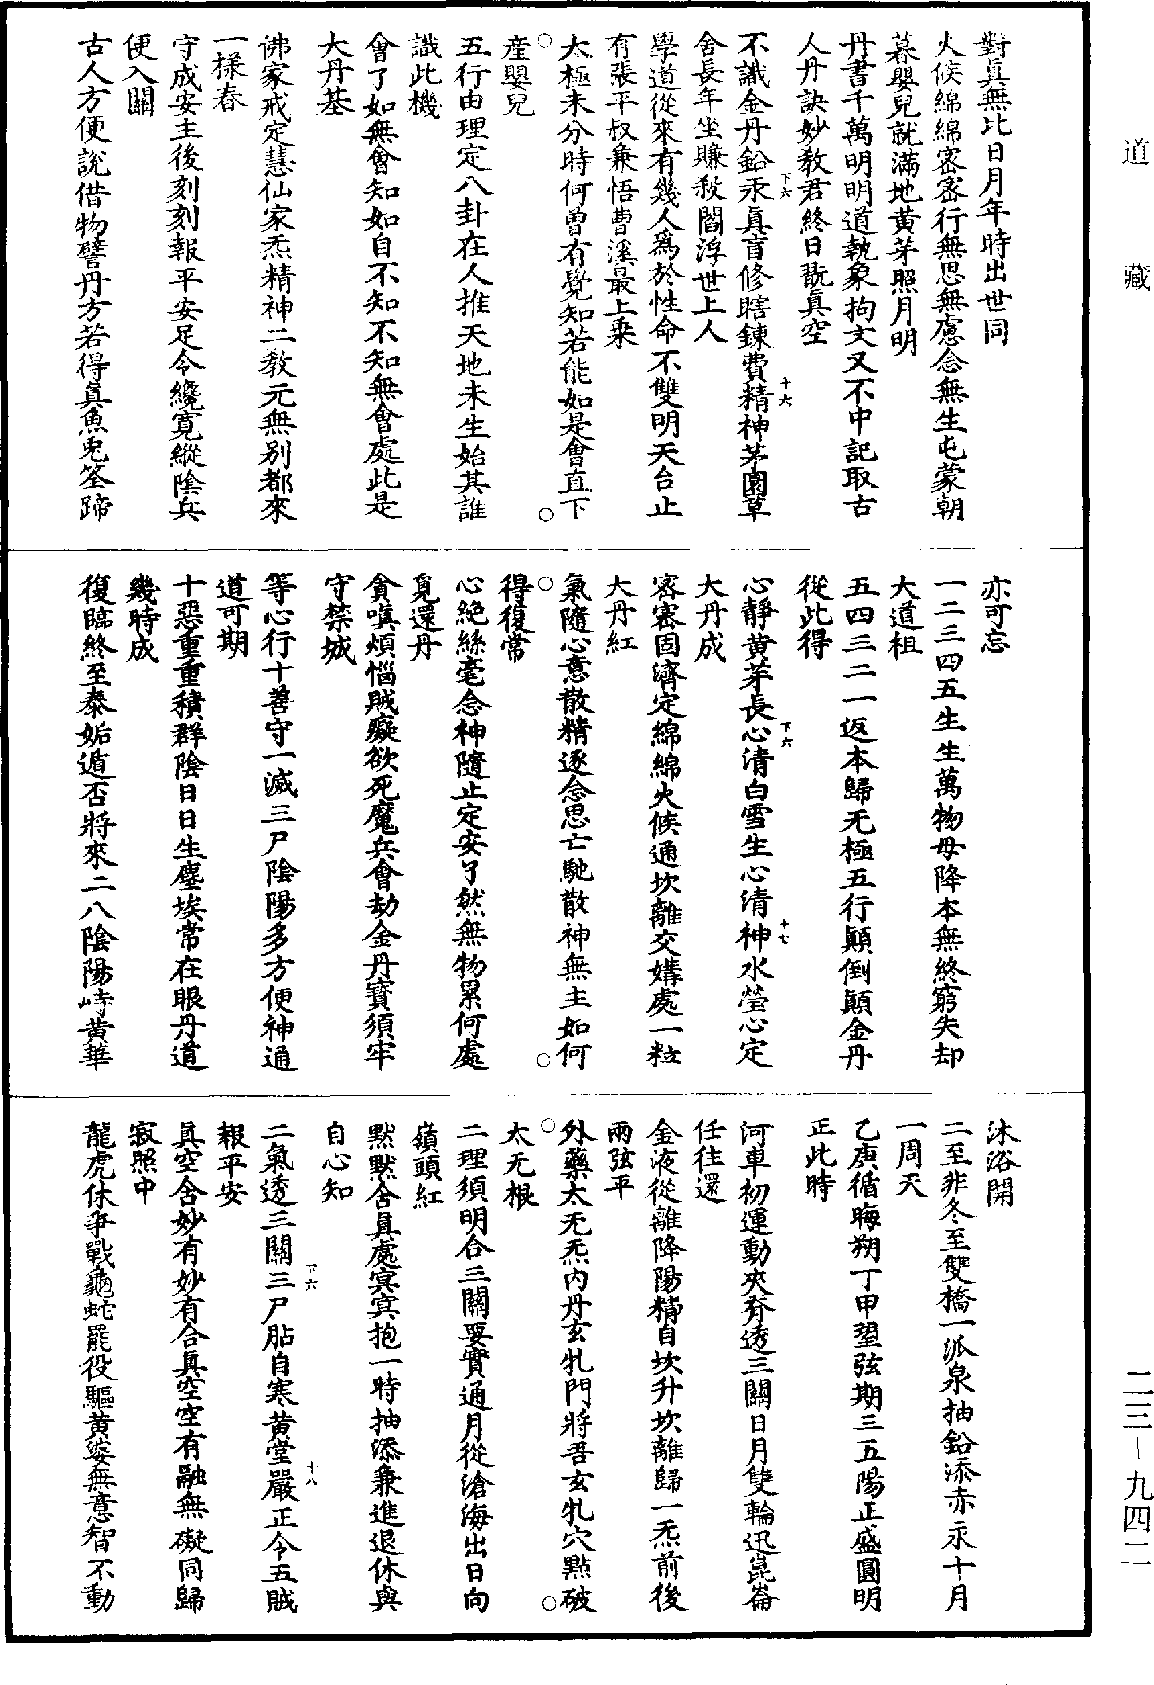 道藏
對真無比日月年時出世同
火候綿綿密密行無思無慮念無生屯蒙朝
暮嬰兒就滿地黃芽照月明
丹書千萬明明道執象拘文又不中記取古
人丹訣妙教君終日翫真空
不識金丹鉛汞真盲修瞎鍊費精神茅園草
舍長年坐賺殺閻浮世上人
學道從來有幾人爲於性命不雙明天台止
有張平叔兼悟曹溪最上乘
太極未分時何曾有覺知若能如是會直下
產嬰兒
五行由理定八卦在人推天地未生始其誰
識此機
會了如無會知如自不知不知無會處此是
大丹基
佛家戒定慧仙家炁精神二教元無別都來
一樣春
守成安主後刻刻報平安足令纔寬縱陰兵
便入關
古人方便說借物譬丹方若得真魚兎筌蹄
下六
十六
亦可忘
一二三四五生生萬物母降本無終窮失却
大道祖
五四三二一返本歸无極五行顛倒顛金丹
從此得
心靜黃芽長心清白雪生心清神水瑩心定
大丹成
密密固濟定綿綿火候通坎離交媾處一粒
大丹紅
氣隨心意散精逐念思亡馳散神無主如何
得復常
心絕絲毫念神隨止定安了然無物累何處
覓還丹
貪嗔煩惱賊癡欲死魔兵會劫金丹寶須牢
守禁城
等心行十善守一滅三尸陰陽多方便神通
道可期
十惡重重積群陰日日生塵埃常在眼丹道
幾時成
復臨終至泰姤遁否將來二八陰陽峙黃華
下六
十七
沐浴開
二至非冬至雙橋一派泉抽鉛添赤汞十月
一周天
乙庚循晦朔丁甲望弦期三五陽正盛圓明
正此時
河車初運動夾脊透三關日月雙輪迅崑崙
任往還
金液從離降陽精自坎升坎離歸一炁前後
兩弦平
外藥太无炁內丹玄牝門將吾玄牝穴點破
太无根
二理須明合三關要實通月從滄海出日向
嶺頭紅
默默含真處冥冥抱一時抽添兼進退休與
自心知
二氣透三關三尸胋自寒黃堂嚴正令五賊
報平安
真空含妙有妙有合真空空有融無礙同歸
寂照中
龍虎休爭戰龜蛇罷役驅黃婆無意智不動
下六
十八
二三—九四二